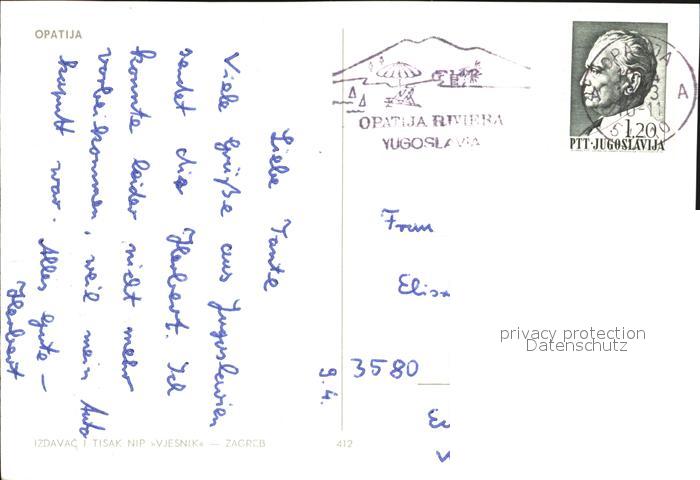 OPATIJA
Liebe Tante
Viele Grüße aus Jugoslawien
sendet dir Herbert. Ich
konnte leider nicht mehr
vorbeikommen, weil mein Auto
kaputt war. Alles gute –
Herbert
9.4.
OPATIJA RIVIERA
YUGOSLAVIA
OPATIJA
A
1.20
PTT·JUGOSLAVIJA
Frau
Elis
privacy protection
Datenschutz
3580
IZDAVAČ I TISAK NIP »VJESNIK« — ZAGREB
412